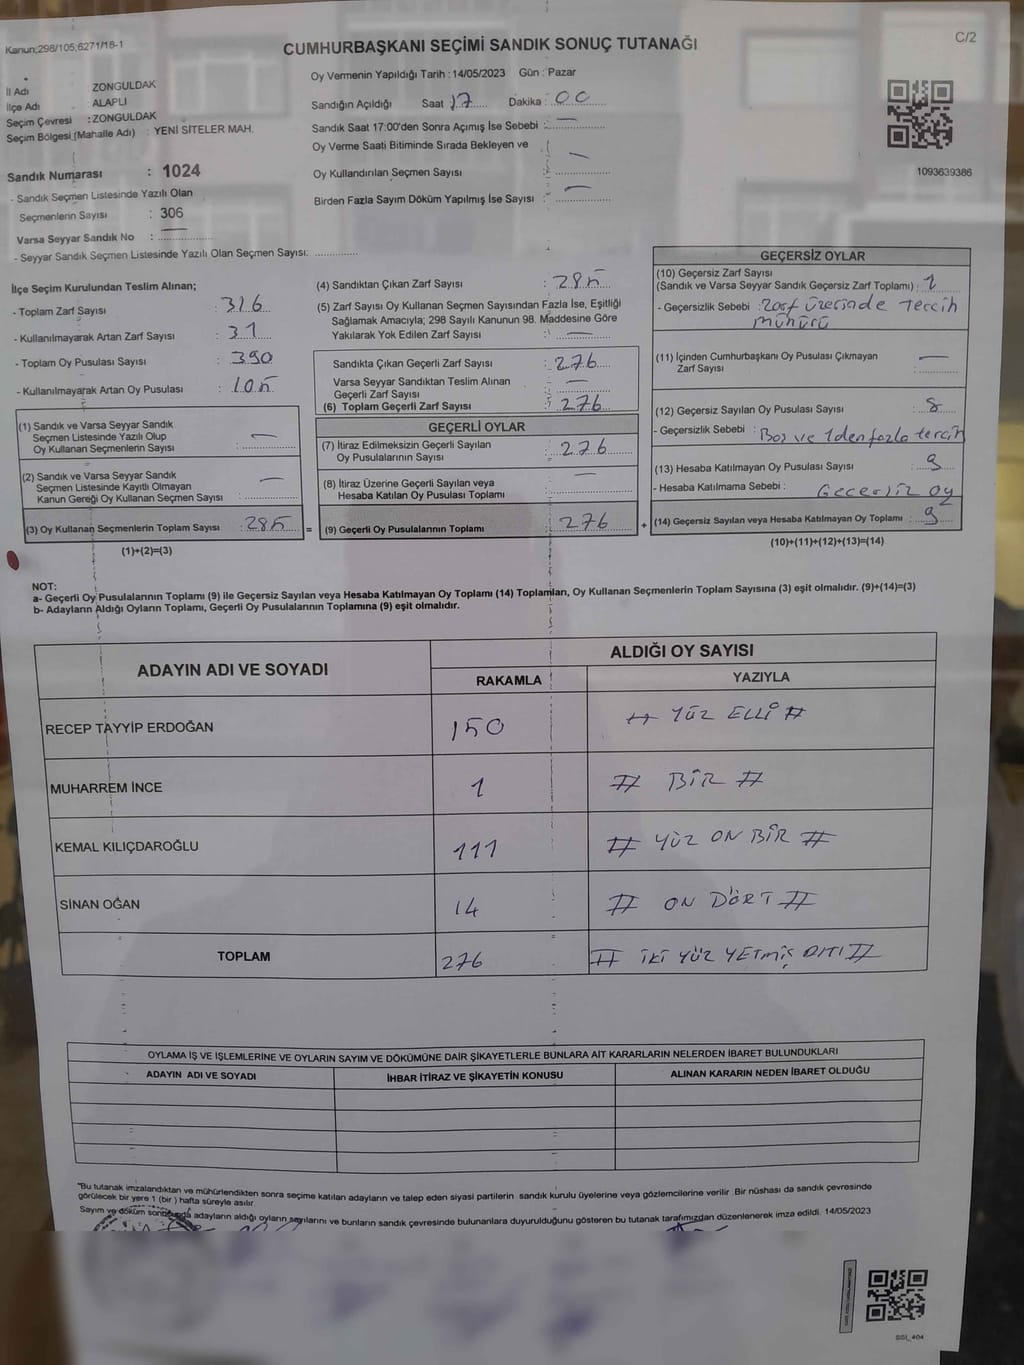 Kanun;298/105;6271/18-1
CUMHURBAŞKANI SEÇİMİ SANDIK SONUÇ TUTANAĞI
C/2
İl Adı ZONGULDAK
İlçe Adı ALAPLI
Seçim Çevresi :ZONGULDAK
Seçim Bölgesi (Mahalle Adı) : YENİ SİTELER MAH.
Sandık Numarası : 1024
- Sandık Seçmen Listesinde Yazılı Olan
Seçmenlerin Sayısı : 306
Varsa Seyyar Sandık No : —
- Seyyar Sandık Seçmen Listesinde Yazılı Olan Seçmen Sayısı:
Oy Vermenin Yapıldığı Tarih : 14/05/2023 Gün : Pazar
Sandığın Açıldığı Saat 17 Dakika : 00
Sandık Saat 17:00'den Sonra Açımış İse Sebebi : —
Oy Verme Saati Bitiminde Sırada Bekleyen ve
Oy Kullandırılan Seçmen Sayısı : —
Birden Fazla Sayım Döküm Yapılmış İse Sayısı : —
1093639386
İlçe Seçim Kurulundan Teslim Alınan;
- Toplam Zarf Sayısı : 316
- Kullanılmayarak Artan Zarf Sayısı : 31
- Toplam Oy Pusulası Sayısı : 390
- Kullanılmayarak Artan Oy Pusulası : 105
(1) Sandık ve Varsa Seyyar Sandık
Seçmen Listesinde Yazılı Olup
Oy Kullanan Seçmenlerin Sayısı : —
(2) Sandık ve Varsa Seyyar Sandık
Seçmen Listesinde Kayıtlı Olmayan
Kanun Gereği Oy Kullanan Seçmen Sayısı : —
(3) Oy Kullanan Seçmenlerin Toplam Sayısı : 285 =
(1)+(2)=(3)
(4) Sandıktan Çıkan Zarf Sayısı : 285
(5) Zarf Sayısı Oy Kullanan Seçmen Sayısından Fazla İse, Eşitliği
Sağlamak Amacıyla; 298 Sayılı Kanunun 98. Maddesine Göre
Yakılarak Yok Edilen Zarf Sayısı : —
Sandıkta Çıkan Geçerli Zarf Sayısı : 276
Varsa Seyyar Sandıktan Teslim Alınan
Geçerli Zarf Sayısı : —
(6) Toplam Geçerli Zarf Sayısı : 276
GEÇERLİ OYLAR
(7) İtiraz Edilmeksizin Geçerli Sayılan
Oy Pusulalarının Sayısı : 276
(8) İtiraz Üzerine Geçerli Sayılan veya
Hesaba Katılan Oy Pusulası Toplamı : —
(9) Geçerli Oy Pusulalarının Toplamı : 276 +
GEÇERSİZ OYLAR
(10) Geçersiz Zarf Sayısı
(Sandık ve Varsa Seyyar Sandık Geçersiz Zarf Toplamı) : 1
- Geçersizlik Sebebi : Zarf üzerinde Tercih
mührü
(11) İçinden Cumhurbaşkanı Oy Pusulası Çıkmayan
Zarf Sayısı : —
(12) Geçersiz Sayılan Oy Pusulası Sayısı : 8
- Geçersizlik Sebebi : Boş ve 1den fazla tercih
(13) Hesaba Katılmayan Oy Pusulası Sayısı : 9
- Hesaba Katılmama Sebebi : Geçersiz oy
(14) Geçersiz Sayılan veya Hesaba Katılmayan Oy Toplamı : 9
(10)+(11)+(12)+(13)=(14)
NOT:
a- Geçerli Oy Pusulalarının Toplamı (9) ile Geçersiz Sayılan veya Hesaba Katılmayan Oy Toplamı (14) Toplamları, Oy Kullanan Seçmenlerin Toplam Sayısına (3) eşit olmalıdır. (9)+(14)=(3)
b- Adayların Aldığı Oyların Toplamı, Geçerli Oy Pusulalarının Toplamına (9) eşit olmalıdır.
ADAYIN ADI VE SOYADI
ALDIĞI OY SAYISI
RAKAMLA YAZIYLA
RECEP TAYYİP ERDOĞAN 150 # YÜZ ELLİ #
MUHARREM İNCE 1 # BİR #
KEMAL KILIÇDAROĞLU 111 # YÜZ ON BİR #
SİNAN OĞAN 14 # ON DÖRT #
TOPLAM 276 # İKİ YÜZ YETMİŞ ALTI #
OYLAMA İŞ VE İŞLEMLERİNE VE OYLARIN SAYIM VE DÖKÜMÜNE DAİR ŞİKAYETLERLE BUNLARA AİT KARARLARIN NELERDEN İBARET BULUNDUKLARI
ADAYIN ADI VE SOYADI İHBAR İTİRAZ VE ŞİKAYETİN KONUSU ALINAN KARARIN NEDEN İBARET OLDUĞU
"Bu tutanak imzalandıktan ve mühürlendikten sonra seçime katılan adayların ve talep eden siyasi partilerin sandık kurulu üyelerine veya gözlemcilerine verilir .Bir nüshası da sandık çevresinde
görülecek bir yere 1 (bir ) hafta süreyle asılır.
Sayım ve döküm sonucunda adayların aldığı oyların sayılarını ve bunların sandık çevresinde bulunanlara duyurulduğunu gösteren bu tutanak tarafımızdan düzenlenerek imza edildi. 14/05/2023
SSI_404